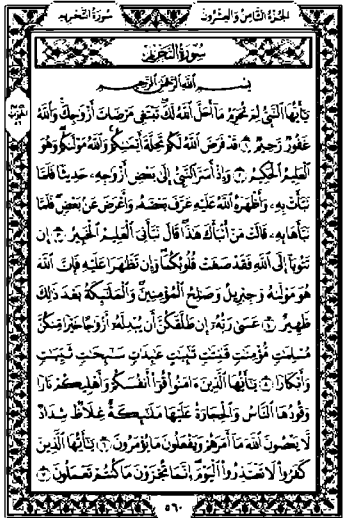 سورة التحريم
الجزء الثامن والعشرون
سورة التحريم
بسم الله الرحمن الرحيم
يَٰٓأَيُّهَا ٱلنَّبِىُّ لِمَ تُحَرِّمُ مَآ أَحَلَّ ٱللَّهُ لَكَ تَبْتَغِى مَرْضَاتَ أَزْوَٰجِكَ وَٱللَّهُ
غَفُورٌ رَّحِيمٌ ١ قَدْ فَرَضَ ٱللَّهُ لَكُمْ تَحِلَّةَ أَيْمَٰنِكُمْ وَٱللَّهُ مَوْلَىٰكُمْ وَهُوَ
ٱلْعَلِيمُ ٱلْحَكِيمُ ٢ وَإِذْ أَسَرَّ ٱلنَّبِىُّ إِلَىٰ بَعْضِ أَزْوَٰجِهِۦ حَدِيثًا فَلَمَّا
نَبَّأَتْ بِهِۦ وَأَظْهَرَهُ ٱللَّهُ عَلَيْهِ عَرَّفَ بَعْضَهُۥ وَأَعْرَضَ عَنۢ بَعْضٍ فَلَمَّا
نَبَّأَهَا بِهِۦ قَالَتْ مَنْ أَنۢبَأَكَ هَٰذَا قَالَ نَبَّأَنِىَ ٱلْعَلِيمُ ٱلْخَبِيرُ ٣ إِن
تَتُوبَآ إِلَى ٱللَّهِ فَقَدْ صَغَتْ قُلُوبُكُمَا وَإِن تَظَٰهَرَا عَلَيْهِ فَإِنَّ ٱللَّهَ
هُوَ مَوْلَىٰهُ وَجِبْرِيلُ وَصَٰلِحُ ٱلْمُؤْمِنِينَ وَٱلْمَلَٰٓئِكَةُ بَعْدَ ذَٰلِكَ
ظَهِيرٌ ٤ عَسَىٰ رَبُّهُۥٓ إِن طَلَّقَكُنَّ أَن يُبْدِلَهُۥٓ أَزْوَٰجًا خَيْرًا مِّنكُنَّ
مُسْلِمَٰتٍ مُّؤْمِنَٰتٍ قَٰنِتَٰتٍ تَٰٓئِبَٰتٍ عَٰبِدَٰتٍ سَٰٓئِحَٰتٍ ثَيِّبَٰتٍ
وَأَبْكَارًا ٥ يَٰٓأَيُّهَا ٱلَّذِينَ ءَامَنُوا۟ قُوٓا۟ أَنفُسَكُمْ وَأَهْلِيكُمْ نَارًا
وَقُودُهَا ٱلنَّاسُ وَٱلْحِجَارَةُ عَلَيْهَا مَلَٰٓئِكَةٌ غِلَاظٌ شِدَادٌ
لَّا يَعْصُونَ ٱللَّهَ مَآ أَمَرَهُمْ وَيَفْعَلُونَ مَا يُؤْمَرُونَ ٦ يَٰٓأَيُّهَا ٱلَّذِينَ
كَفَرُوا۟ لَا تَعْتَذِرُوا۟ ٱلْيَوْمَ إِنَّمَا تُجْزَوْنَ مَا كُنتُمْ تَعْمَلُونَ ٧
٥٦٠